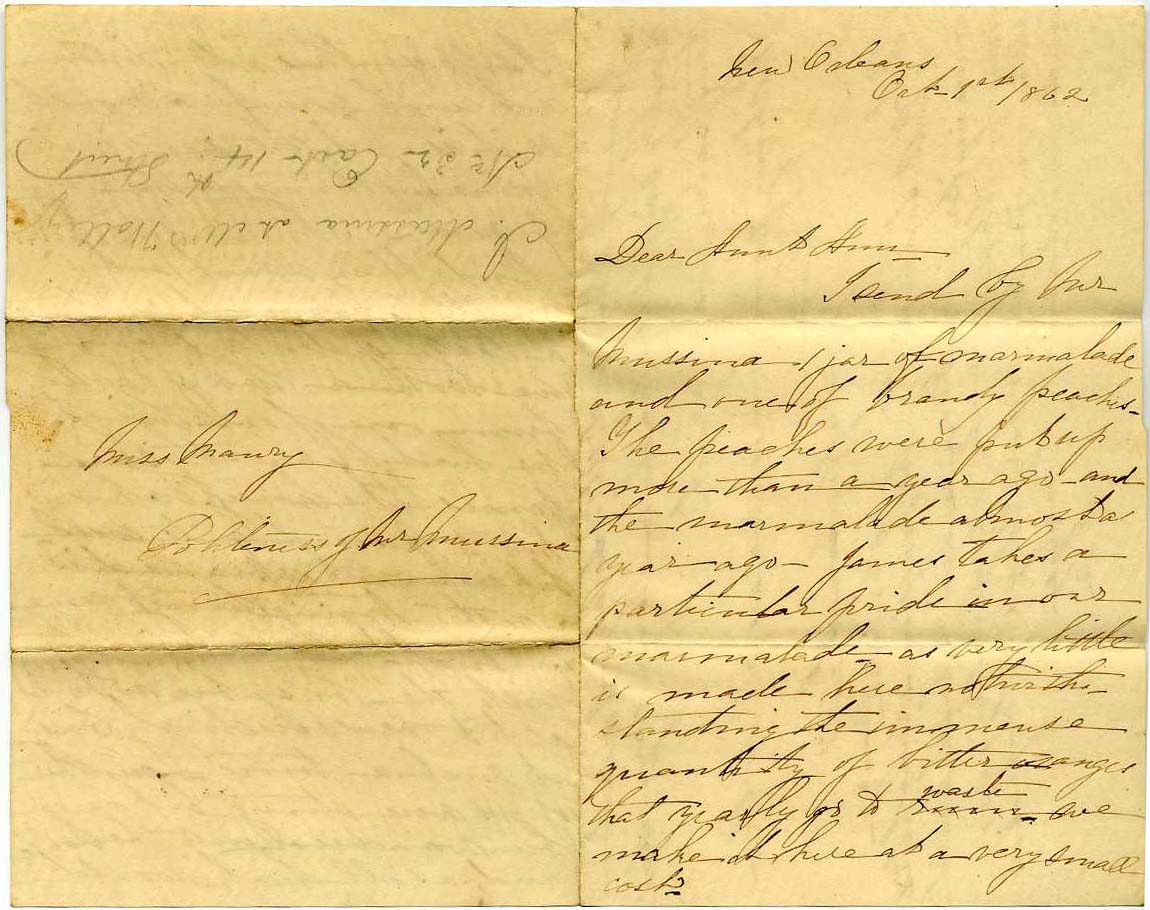 New Orleans
Oct 1st 1862
Dear Aunt Ann
I send by Mr
Mussina 1 jar of marmalade
and one of brandy peaches-
The peaches were put up
more than a year ago and
the marmalade almost a
year ago - James takes a
particular pride in our
marmalade as very little
is made here notwith-
standing the immense
quantity of bitter oranges
that yearly go to waste we
make it here at a very small
cost
Miss Maury
Politeness of Mr Mussina
S. Mussina at Mrs
No 32 East 14th Street